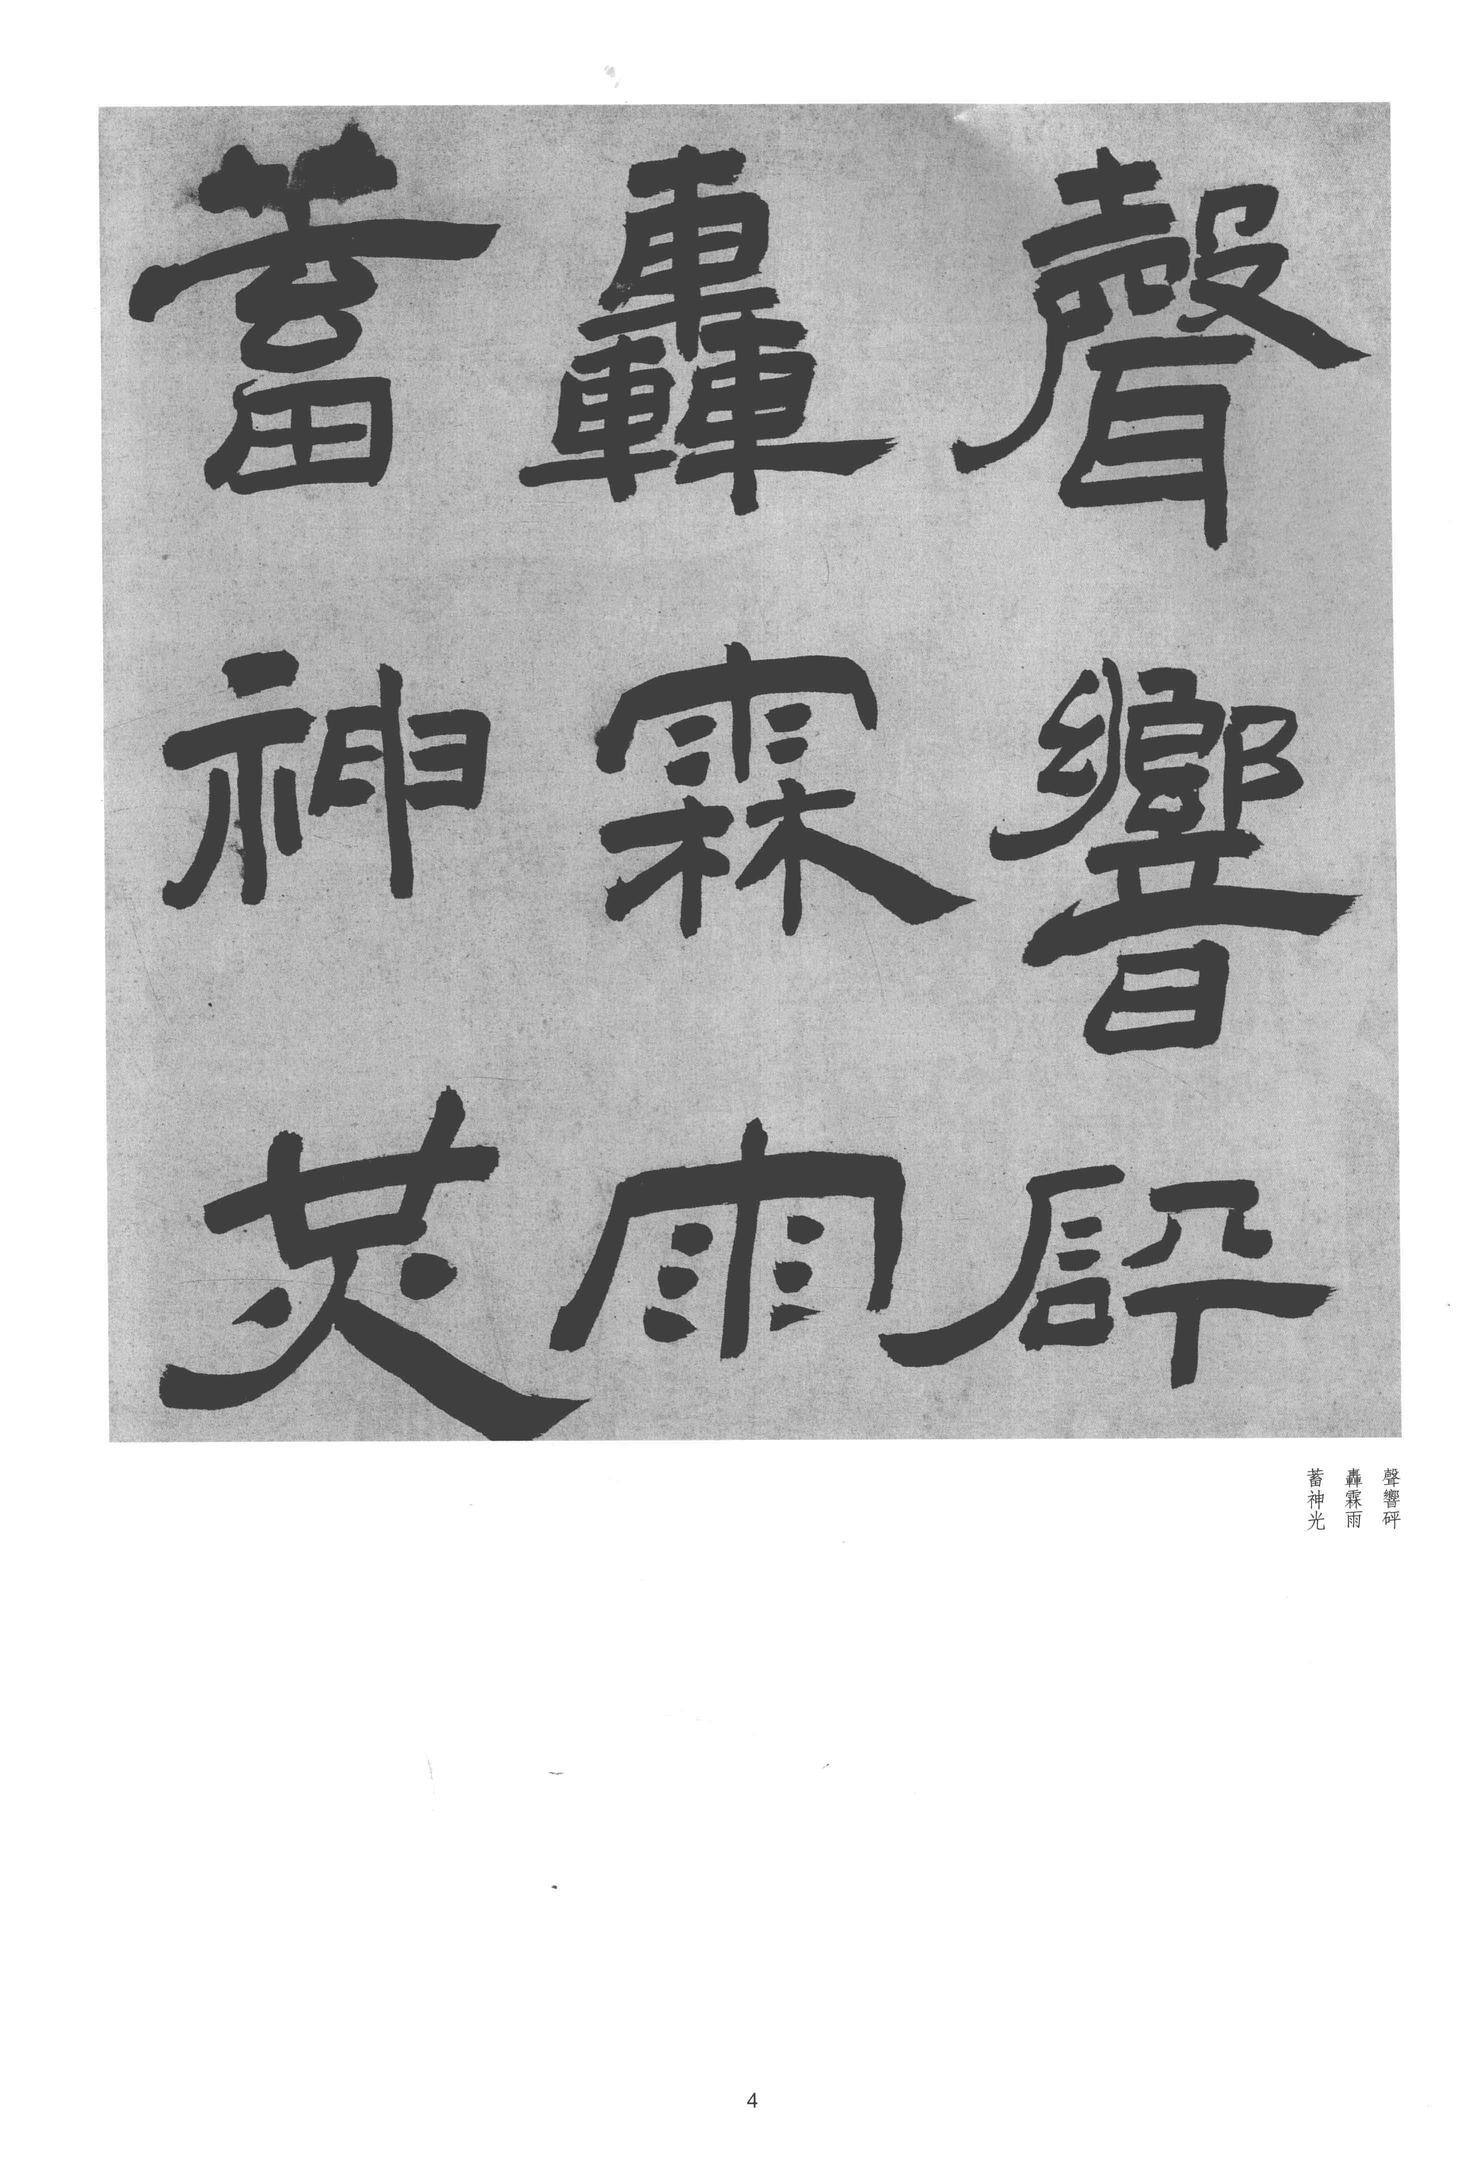 聲響砰
轟霖雨
蓄神炗
聲響砰
轟霖雨
蓄神光
4